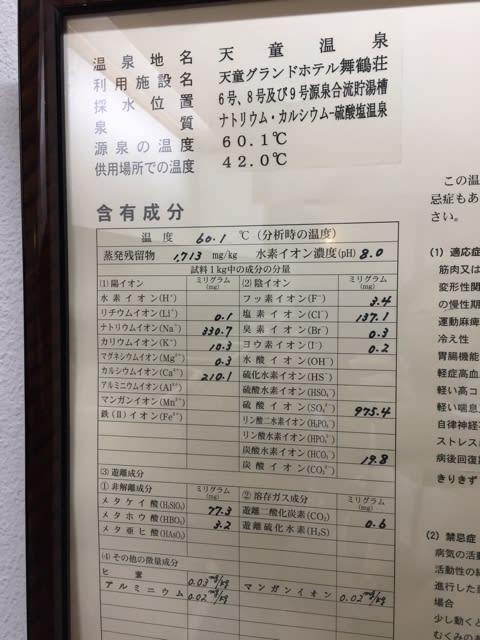 温泉地名 天童温泉
利用施設名 天童グランドホテル舞鶴荘
採水位置 6号、8号及び9号源泉合流貯湯槽
泉質 ナトリウム・カルシウム−硫酸塩温泉
源泉の温度 60.1℃
供用場所での温度 42.0℃
含有成分
温度 60.1 ℃（分析時の温度）
蒸発残留物 1,713 mg/kg 水素イオン濃度(pH) 8.0
試料1kg中の成分の分量
(1) 陽イオン ミリグラム (mg)
水素イオン(H⁺)
リチウムイオン(Li⁺) 0.1
ナトリウムイオン(Na⁺) 330.7
カリウムイオン(K⁺) 10.3
マグネシウムイオン(Mg²⁺) 0.3
カルシウムイオン(Ca²⁺) 210.1
アルミニウムイオン(Al³⁺)
マンガンイオン(Mn²⁺)
鉄(Ⅱ)イオン(Fe²⁺)
(2) 陰イオン ミリグラム (mg)
フッ素イオン(F⁻) 3.4
塩素イオン(Cl⁻) 137.1
臭素イオン(Br⁻) 0.3
ヨウ素イオン(I⁻) 0.2
水酸イオン(OH⁻)
硫化水素イオン(HS⁻)
硫酸水素イオン(HSO₄⁻)
硫酸イオン(SO₄²⁻) 975.4
リン酸二水素イオン(H₂PO₄⁻)
リン酸水素イオン(HPO₄²⁻)
炭酸水素イオン(HCO₃⁻) 19.8
炭酸イオン(CO₃²⁻)
(3) 遊離成分
① 非解離成分 ミリグラム (mg)
メタケイ酸(H₂SiO₃) 77.3
メタホウ酸(HBO₂) 3.2
メタ亜ヒ酸(HAsO₂)
② 溶存ガス成分 ミリグラム (mg)
遊離二酸化炭素(CO₂) 0.6
遊離硫化水素(H₂S)
(4) その他の微量成分
ヒ素 0.03 mg/kg
アルミニウム 0.02 mg/kg マンガンイオン 0.02 mg/kg
この温
忌症もあ
さい。
(1) 適応症
筋肉又は
変形性関
の慢性期
運動麻痺
冷え性
胃腸機能
軽症高血
軽い高コ
軽い喘息
自律神経
ストレス
病後回復
きりきず
(2) 禁忌症
病気の活動
活動性の結
進行した
場合
少し動くと
むくみの